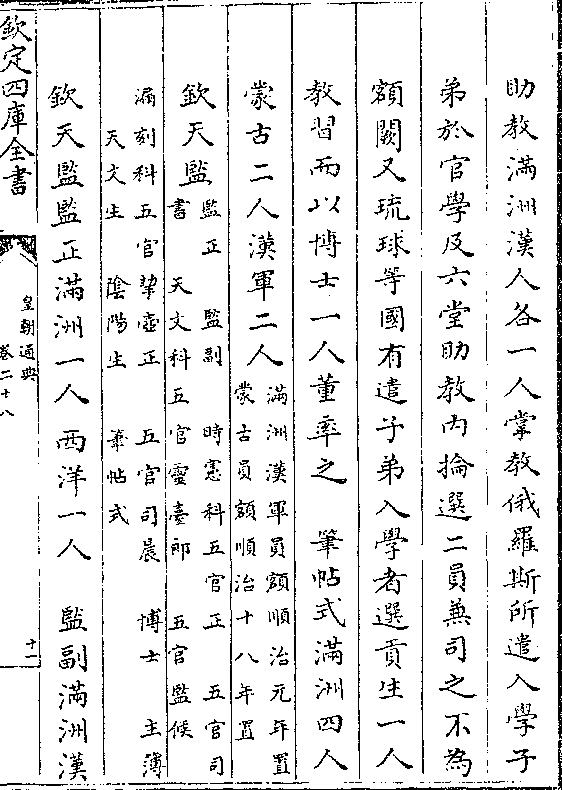 助教滿洲漢人各一人掌教俄羅斯所遣入學子
弟於官學及六堂助教内掄選二員兼司之不為
額闕又琉球等國有遣子弟入學者選貢生一人
教習而以博士一人董率之　筆帖式滿洲四人
蒙古二人漢軍二人滿洲漢軍員額順治元年置
蒙古員額順治十八年置
欽天監監正　監副　時憲科五官正　五官司
書　天文科五官靈臺郎　五官監候
漏刻科五官挈壺正　五官司晨　博士　主簿
天文生　陰陽生　筆帖式
欽天監監正滿洲一人　西洋一人　監副滿洲漢
欽定四庫全書
皇朝通典
卷二十八
十一